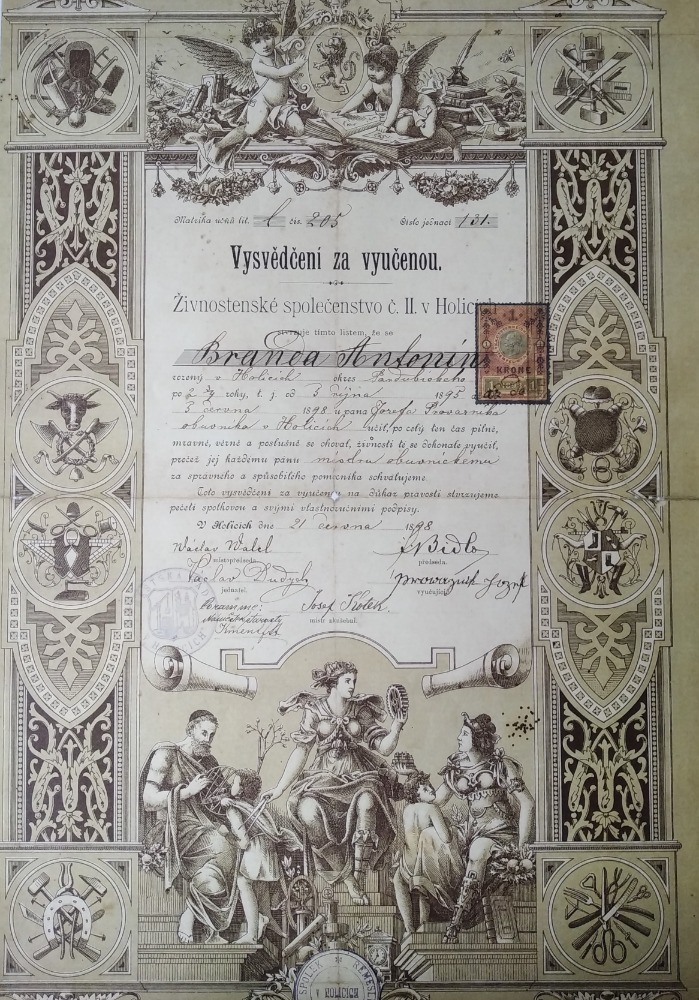 Matrika učňů lit. l čís. 205 Číslo jednací 131.
Vysvědčení za vyučenou.
Živnostenské společenstvo č. II. v Holicích
stvrzuje tímto listem, že se
Branda Antonín
rozený v Holicích okres Pardubického
po 2 3/4 roky, t. j. od 3 října 1895
3 června 1898 u pana Josefa Provazníka
obuvníka v Holicích učil, po celý ten čas pilně,
mravně, věrně a poslušně se choval, živnosti té se dokonale vyučil,
pročež jej každému pánu mistru obuvnickému
za správného a způsobilého pomocníka schvalujeme
Toto vysvědčení za vyučenou na důkaz pravosti stvrzujeme
pečetí spolkovou a svými vlastnoručními podpisy.
V Holicích dne 21 června 1898
1
KRONE
Václav F. Bidlo
místopředseda. předseda.
Václav Provazník Josef
jednatel. vyučující.
Josef
mistr zkušební.
V HOLICÍCH